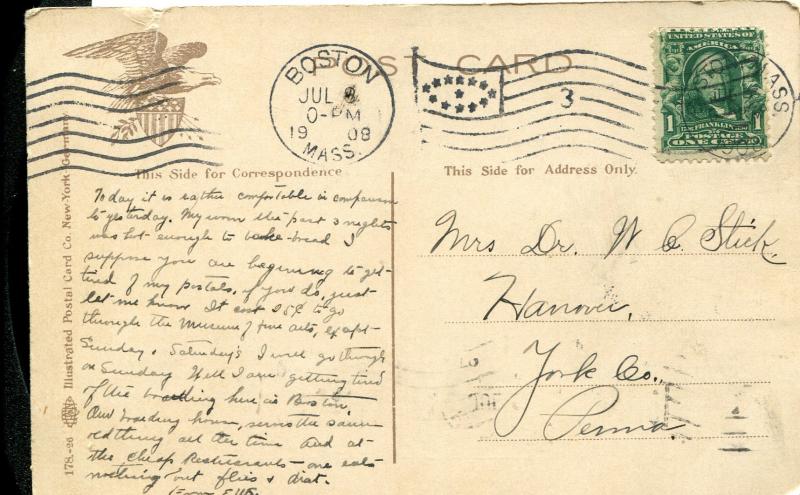 POST CARD
BOSTON
JUL
0-PM
19 08
MASS.
3
UNITED STATES OF
AMERICA
1 1
POSTAGE
ONE CENT
MASS.
This Side for Correspondence
This Side for Address Only.
178.-26 Illustrated Postal Card Co. New-York-Germany
Today it is rather comfortable in comparison
to yesterday. My room the past 3 nights
was hot enough to bake bread I
suppose you are beginning to get
tired of my postals, if you do, just
let me know It cost 25¢ to go
through the Museum of fine arts, except
Sunday & Saturday's I will go through
on Sunday Well I am getting tired
of the boarding here in Boston,
Our boarding house, serves the same
old thing all the time and at
the cheap Restaurants one eats
nothing but flies & dirt.
From
Mrs Dr. W C. Stick.
Hanover,
York Co.,
Penna